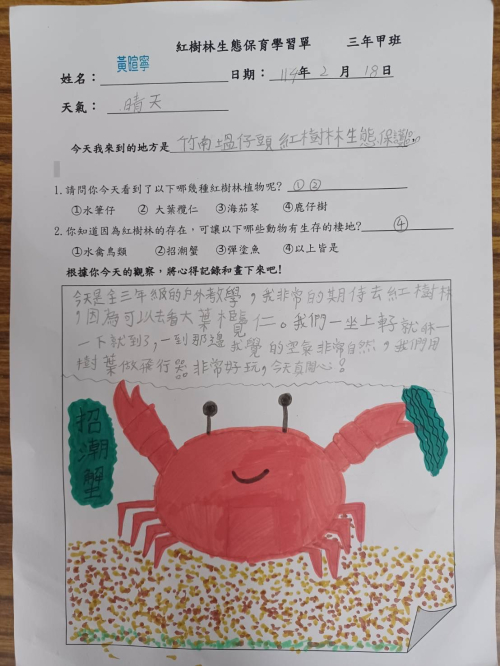 紅樹林生態保育學習單 三年甲班
姓名：黃暄寧 日期：114年2月18日
天氣：晴天
今天我來到的地方是 竹南塭仔頭紅樹林生態保
1.請問你今天看到了以下哪幾種紅樹林植物呢？①②
①水筆仔 ②大葉欖仁 ③海茄苳 ④鹿仔樹
2.你知道因為紅樹林的存在，可讓以下哪些動物有生存的棲地？④
①水禽鳥類 ②招潮蟹 ③彈塗魚 ④以上皆是
根據你今天的觀察，將心得記錄和畫下來吧！
今天是全三年級的戶外教學，我非常的期待去紅樹林
，因為可以去看大葉欖仁。我們一坐上車就咻一
下就到了，一到那邊我覺的空氣非常自然，我們用
樹葉做飛行器非常好玩，今天真開心！
招潮蟹